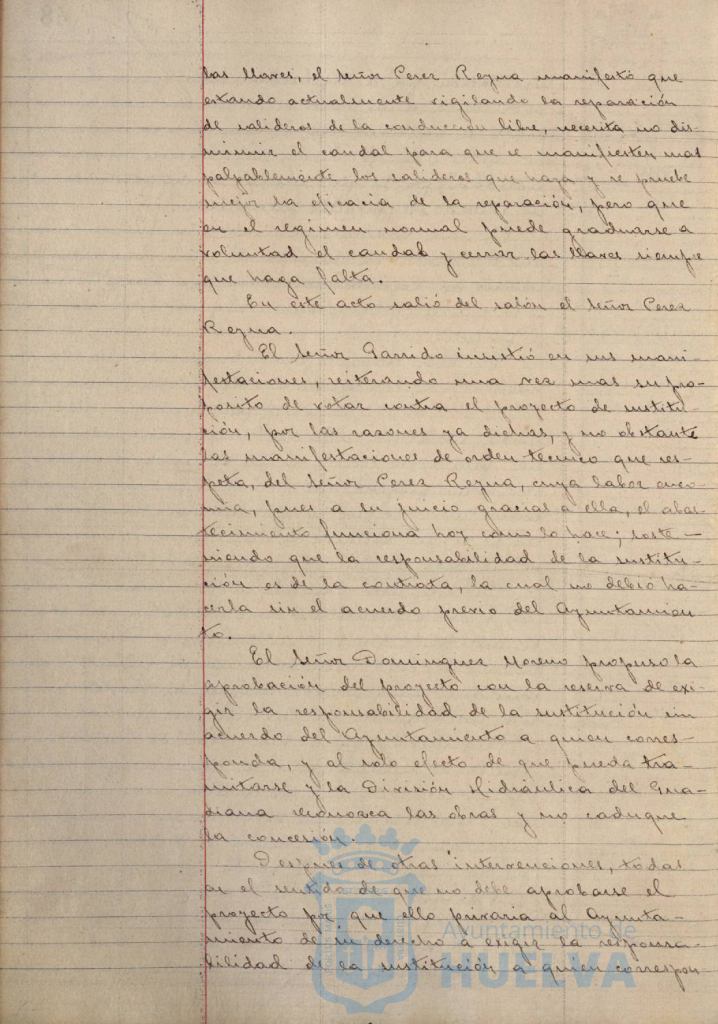 las llaves, el señor Perez Reyna manifestó que
estando actualmente vigilando la reparación
de salideros de la conducción libre, necesita no dis-
minuir el caudal para que se manifiesten mas
palpablemente los salideros que haya y se pruebe
mejor la eficacia de la reparación, pero que
en el regimen normal puede graduarse a
voluntad el caudal y cerrar las llaves siempre
que haga falta.
En este acto salió del salón el señor Perez
Reyna.
El señor Garrido insistió en sus mani-
festaciones, reiterando una vez mas su pro-
posito de votar contra el proyecto de sustitu-
ción, por las razones ya dichas, y no obstante
las manifestaciones de orden tecnico que res-
peta, del señor Perez Reyna, cuya labor enco-
mia, pues a su juicio gracias a ella, el abas-
tecimiento funciona hoy como lo hace; soste-
niendo que la responsabilidad de la sustitu-
ción es de la contrata, la cual no debió ha-
cerla sin el acuerdo previo del Ayuntamien
to.
El señor Dominguez Moreno propuso la
aprobación del proyecto con la reserva de exi-
gir la responsabilidad de la sustitución sin
acuerdo del Ayuntamiento a quien corres-
ponda, y al solo efecto de que pueda tra-
mitarse y la División Hidráulica del Gua-
diana reconozca las obras y no caduque
la concesión.
Despues de otras intervenciones, todas
en el sentido de que no debe aprobarse el
proyecto por que ello privaria al Ayunta-
miento de su derecho a exigir la responsa-
bilidad de la sustitución a quien correspon
Ayuntamiento de
HUELVA